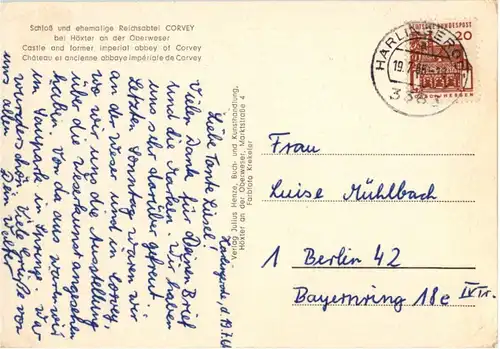 Schloß und ehemalige Reichsabtei CORVEY
bei Höxter an der Oberweser
Castle and former imperial abbey of Corvey
Château et ancienne abbaye impériale de Corvey
d. 19.7.6
Liebe Tante Liesel!
Vielen Dank für Deinen Brief
und die Marken. Wir haben
uns sehr darüber gefreut.
Letzten Sonntag waren wir
an der Weser und in Corvey,
wo wir uns die Ausstellung
über die Weserkunst angesehen
haben. Von da aus waren wir
im Tierpark in
Viele Grüße von
uns allen
Dein Walter
Verlag Julius Henze, Buch- und Kunsthandlung,
Höxter an der Oberweser, Marktstraße 4
Farbfoto Krekeler
DEUTSCHE BUNDESPOST
20
19.7.65
Frau
Luise Mühlbach
1 Berlin 42
Bayernring 18c IV Tr.